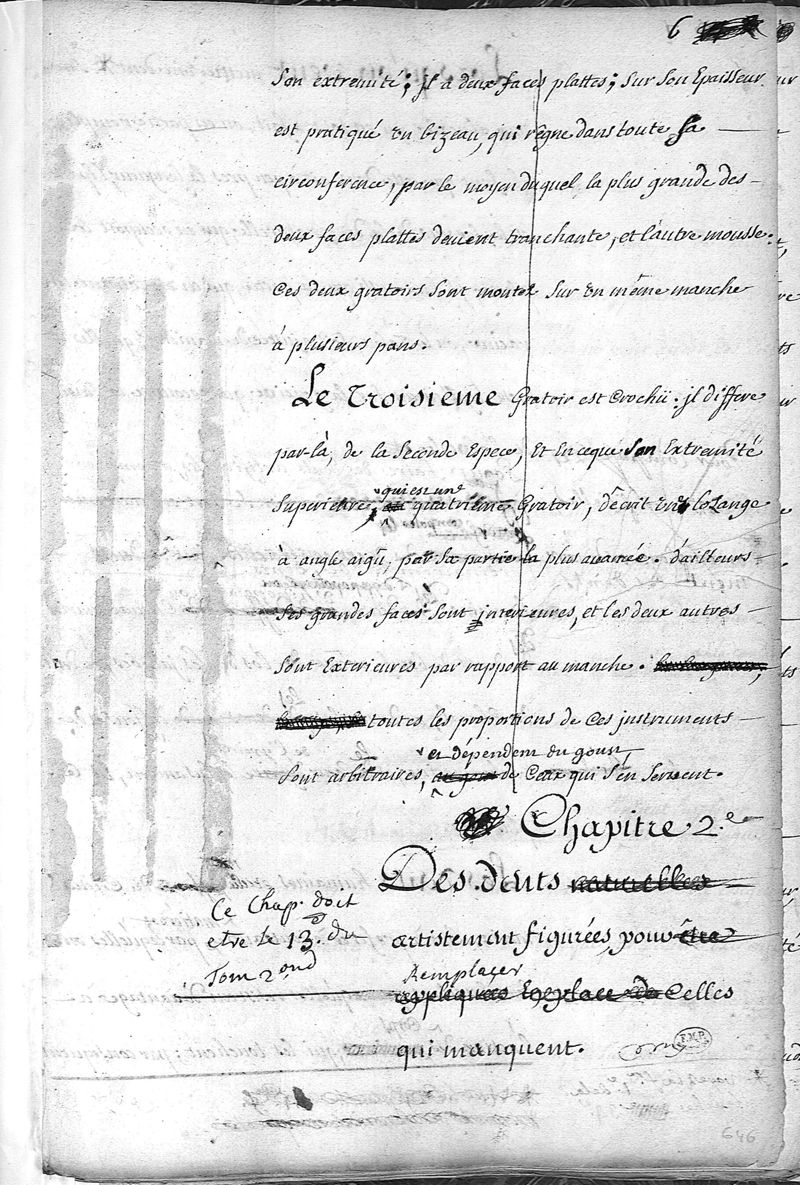 6
Son extremité; jl a deux faces plattes; Sur Son Epaisseur
est pratiqué un bizeau, qui règne dans toute Sa
circonference, par le moyen duquel la plus grande des
deux faces plattes devient tranchante, et l'autre mousse.
Ces deux gratoirs Sont montez Sur un même manche
à plusieurs pans.
Le Troisieme Gratoir est Crochü. jl differe
par-là, de la Seconde Espece, Et En ceque Son Extremité
qui est une
Superieure, quatriéme Gratoir, décrit un loZange
à angle aigû, par Sa partie la plus avancée. d'ailleurs
Ses grandes faces Sont jnterieures, et les deux autres
Sont Exterieures par rapport au manche.
toutes les proportions de Ces jnstruments
et dépendent du goust
Sont arbitraires, au goust de Ceux qui S'en Servent.
Chapitre 2.e
Des dents naturelles
Ce Chap. doit
etre le 13.e du
Tom 2.ond
artistement figurées, pour être
Remplacer
appliquées En place de Celles
qui manquent.
F.M.P.
646